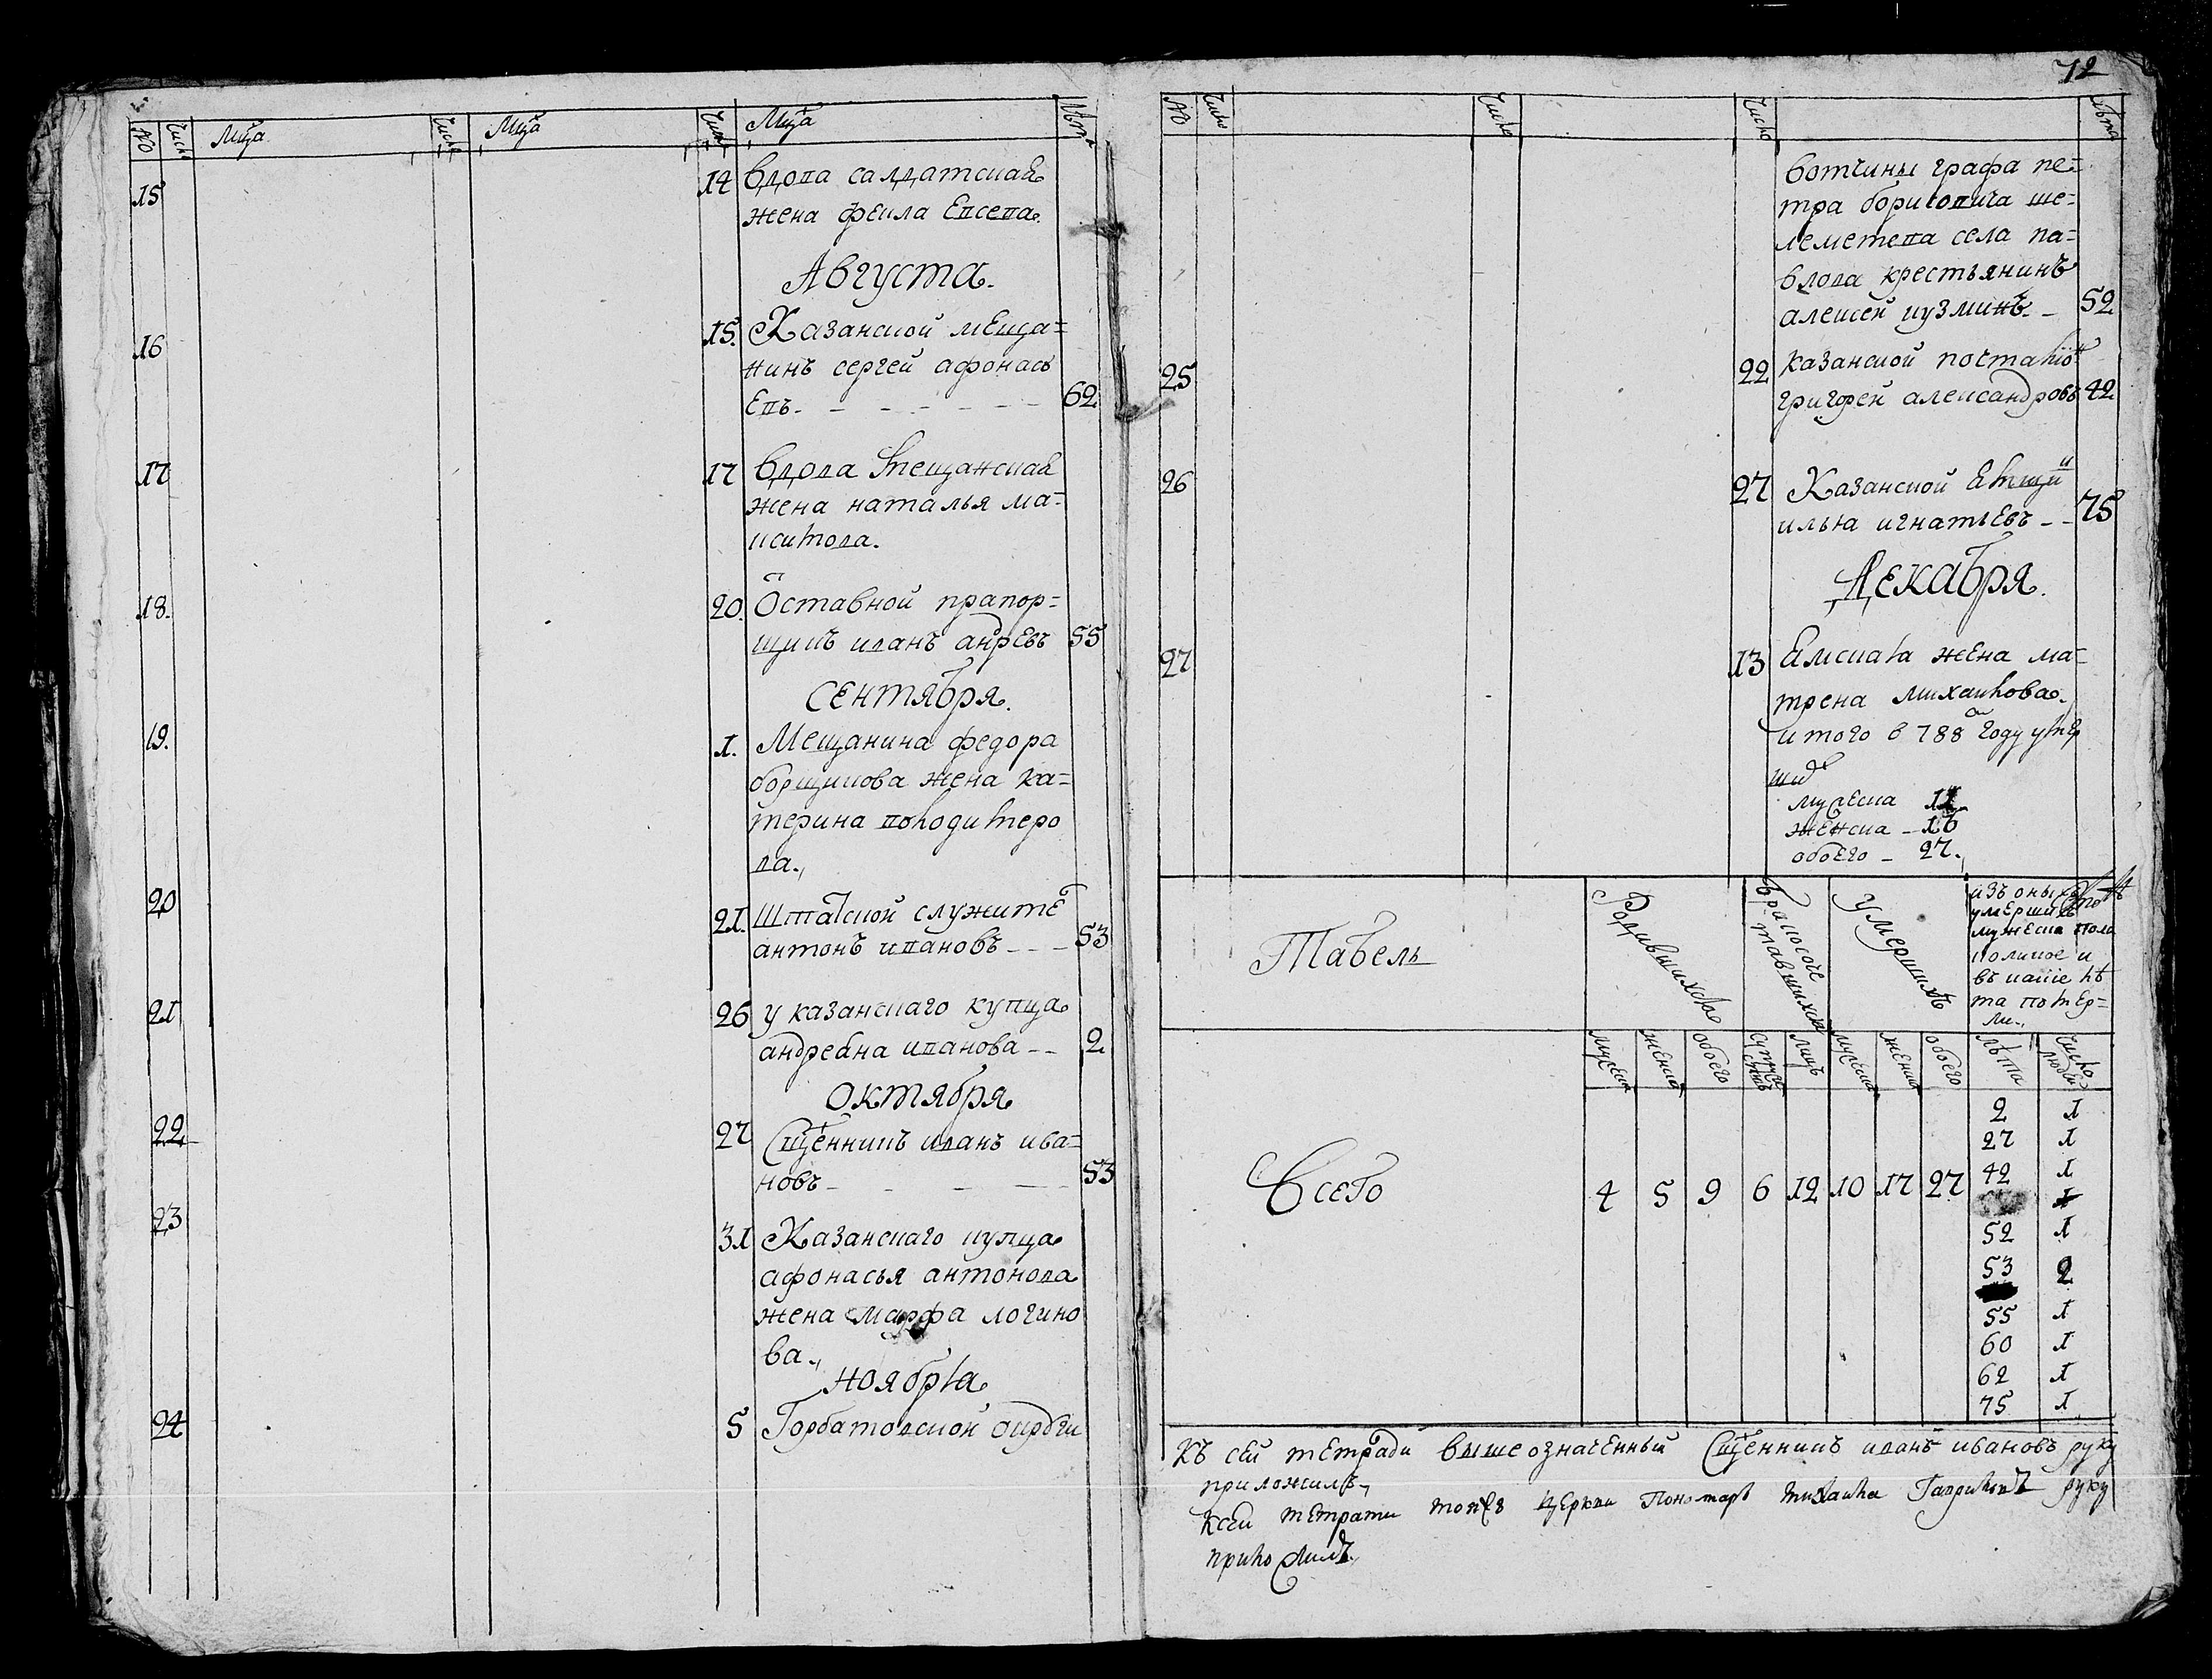 № Число Лица Число Лица Число Лица Лѣта
15 14 вдова салдатская
жена фекла Евсева
Августа.
16 15. Казанской меща=
нинъ сергей афонась
евъ. 62
17 17 вдова мещанская
жена наталья ма=
ксимова.
18. 20. Ѿставной прапор=
щикъ иванъ андревъ 55
сентября.
19. 1. Мещанина федора
борщикова жена ка=
терина володимеро
ва.,
20 21. Штатской служите
антонъ ивановъ 53
21 26 у казанскаго купца
андреяна иванова 2
октября
22 27 Сщенникъ иванъ ива=
новъ 53
23 31 Казанскаго купца
афонасья антонова
жена марфа логино
ва.,
ноября
24 5 Горбатовской округи
72
№ Число Число Число Лѣта
вотчины графа пе=
тра борисовича ше=
реметева села па=
влова крестьянинъ
алексей кузминъ. 52
25 22 казанской
григорей александровъ 42
26 27 Казанской
илья игнатьевъ 75
Декабря.
27 13 Ямская жена ма=
трена михаилова.
итого в 788 году умер
ших
мужеска 11
женска 16
обоего 27.
Табель Родившихся Бракосоче
тавшихся Умершихъ изъ оныхъ
умершихъ
мужеска пола
коликое и
въ какие лѣ
та померъ=
ли.,
мужеска женска обоего супружествъ лицъ мужеска женска обоего лѣта число людей
Всего 4 5 9 6 12 10 17 27
2 1
27 1
42 1
1
52 1
53 2
55 1
60 1
62 1
75 1
Къ сей тетради вышеозначенный Сщенникъ иванъ ивановъ руку
приложилъ.,
Ксеи тетрати тояже церкви Пономарь михаила Гавриловъ руку
приложилъ.